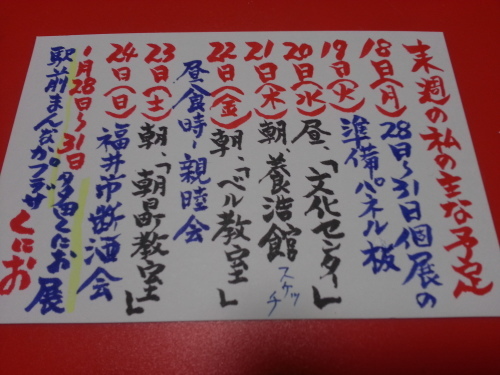 来週の私の主な予定
18日(月)28日〜31日個展の
準備パネル板
19日(火)
20日(水)昼、「文化センター」
21日(木)朝、養浩館
スケッチ
22日(金)朝、「ベル教室」
昼食時〜親睦会
23日(土)朝、「朝昼教室」
24日(日)福井市断酒会
1月28日〜31日
駅前まんだがプラザ
多田くにお展
くにお